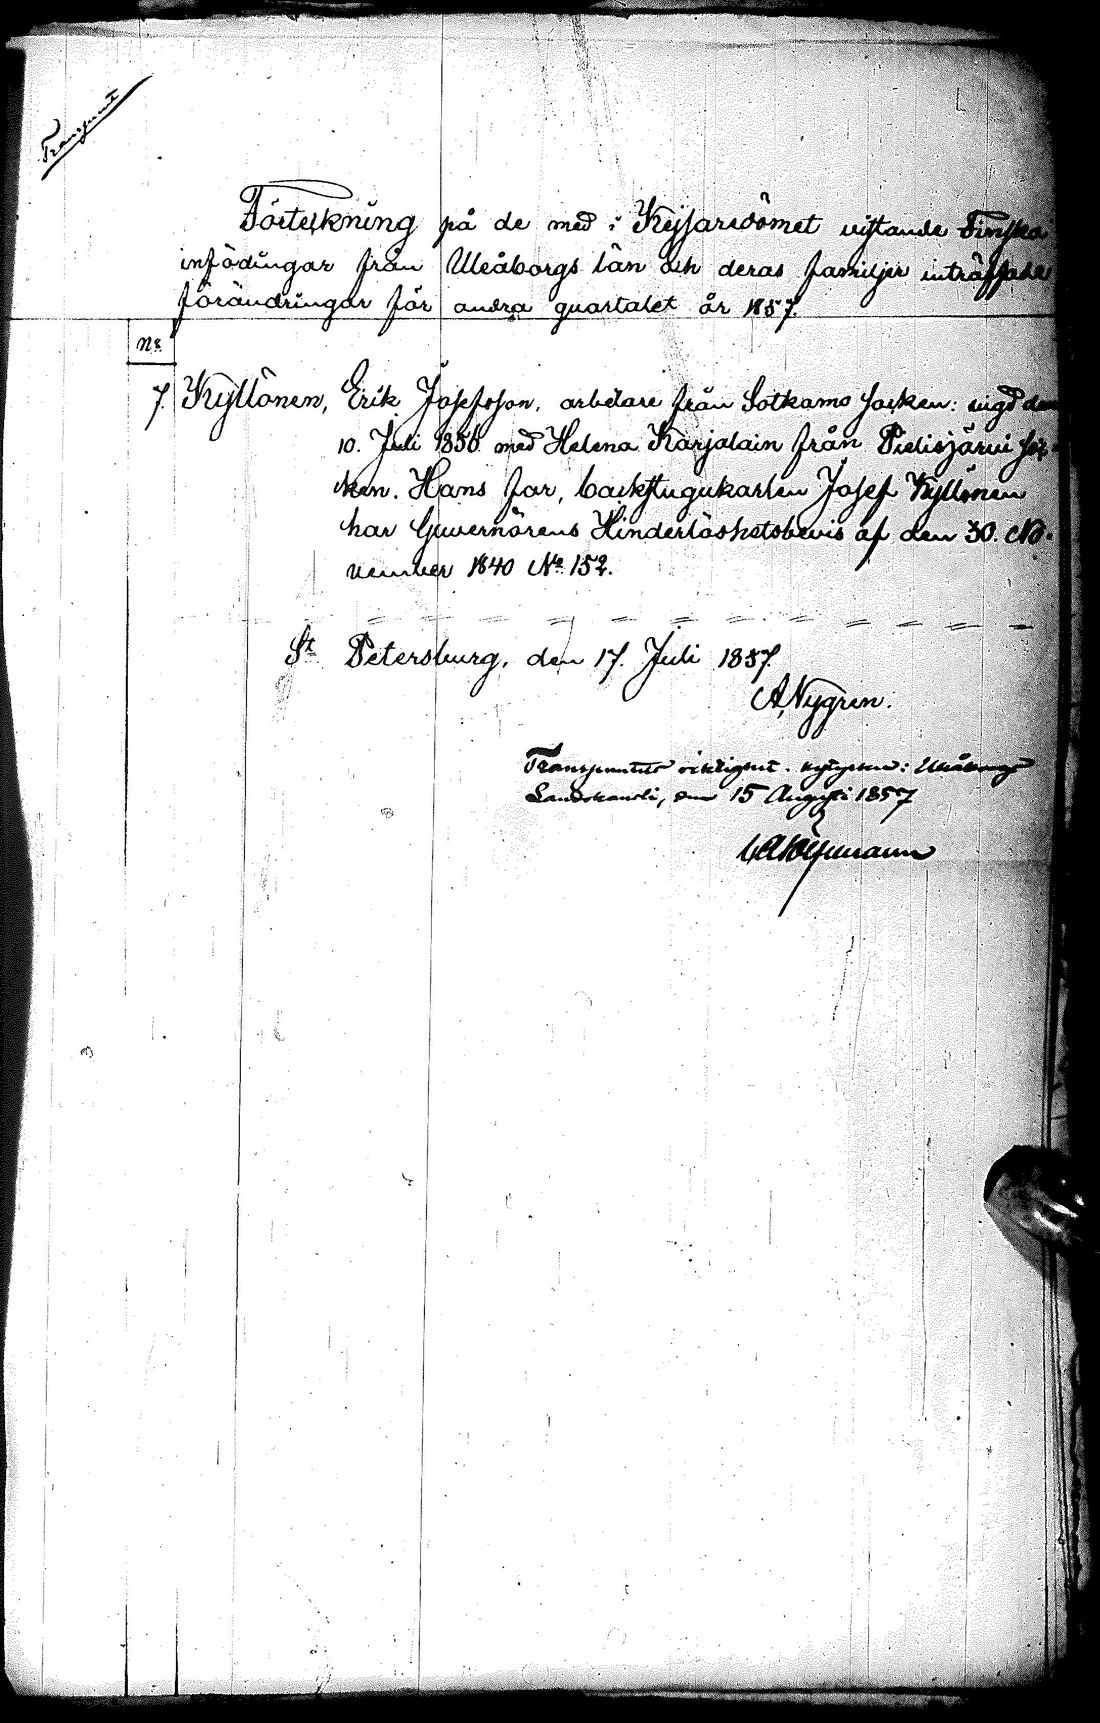 Transsumt
Förteckning på de med i Kejsaredömet vistande Finska
infödingar från Uleåborgs län och deras familjer inträffade
förändringar för andra quartalet år 1857.
No
7. Kyllönen, Erik Josefsson, arbetare från Sotkamo socken: vigd den
10. Juli 1856 med Helena Karjalain från Pielisjärvi soc-
ken. Hans far, backstugukarlen Josef Kyllönen
har Guvernörens Hinderlöshetsbevis af den 30. No-
vember 1840 No 152.
St Petersburg, den 17. Juli 1857.
A. Nygren.
Transsumtets riktighet betygar: Uleåborgs
Landskansli, den 15 Augusti 1857